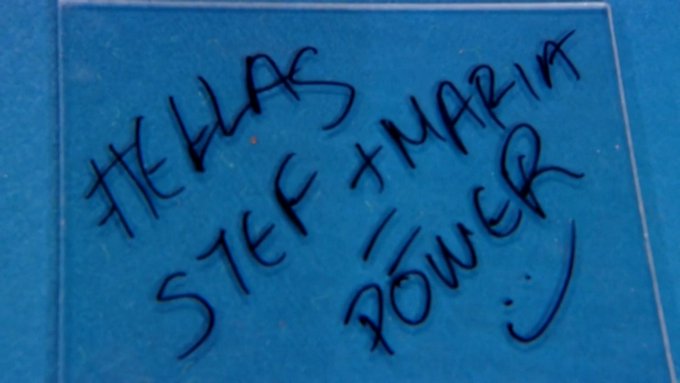 HELLAS
STEF + MARIA
=
POWER
:)